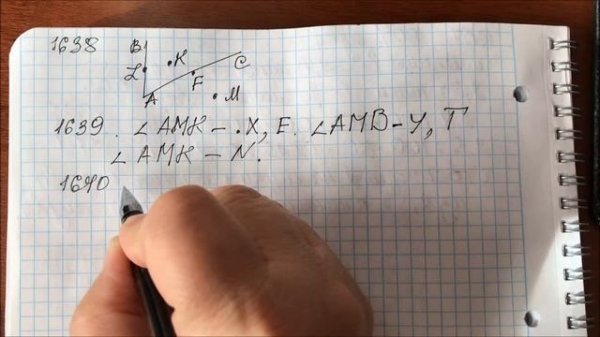 1638
B
L
K
C
F
A
M
1639. ∠AMK – .X, E. ∠AMB – Y, T
∠AMK – N.
1640